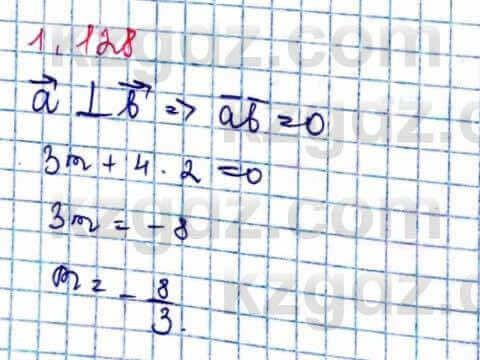 1.128
$\vec{a} \perp \vec{b} \Rightarrow \overline{ab} = 0$
3m + 4 · 2 = 0
3m = - 8
m = - \frac{8}{3}.
kzgdz.com
kzgdz.com
kzgdz.com